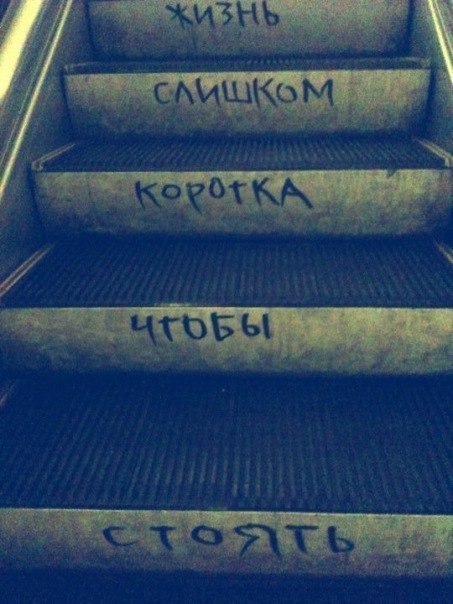 жизнь
слишком
коротка
чтобы
стоять